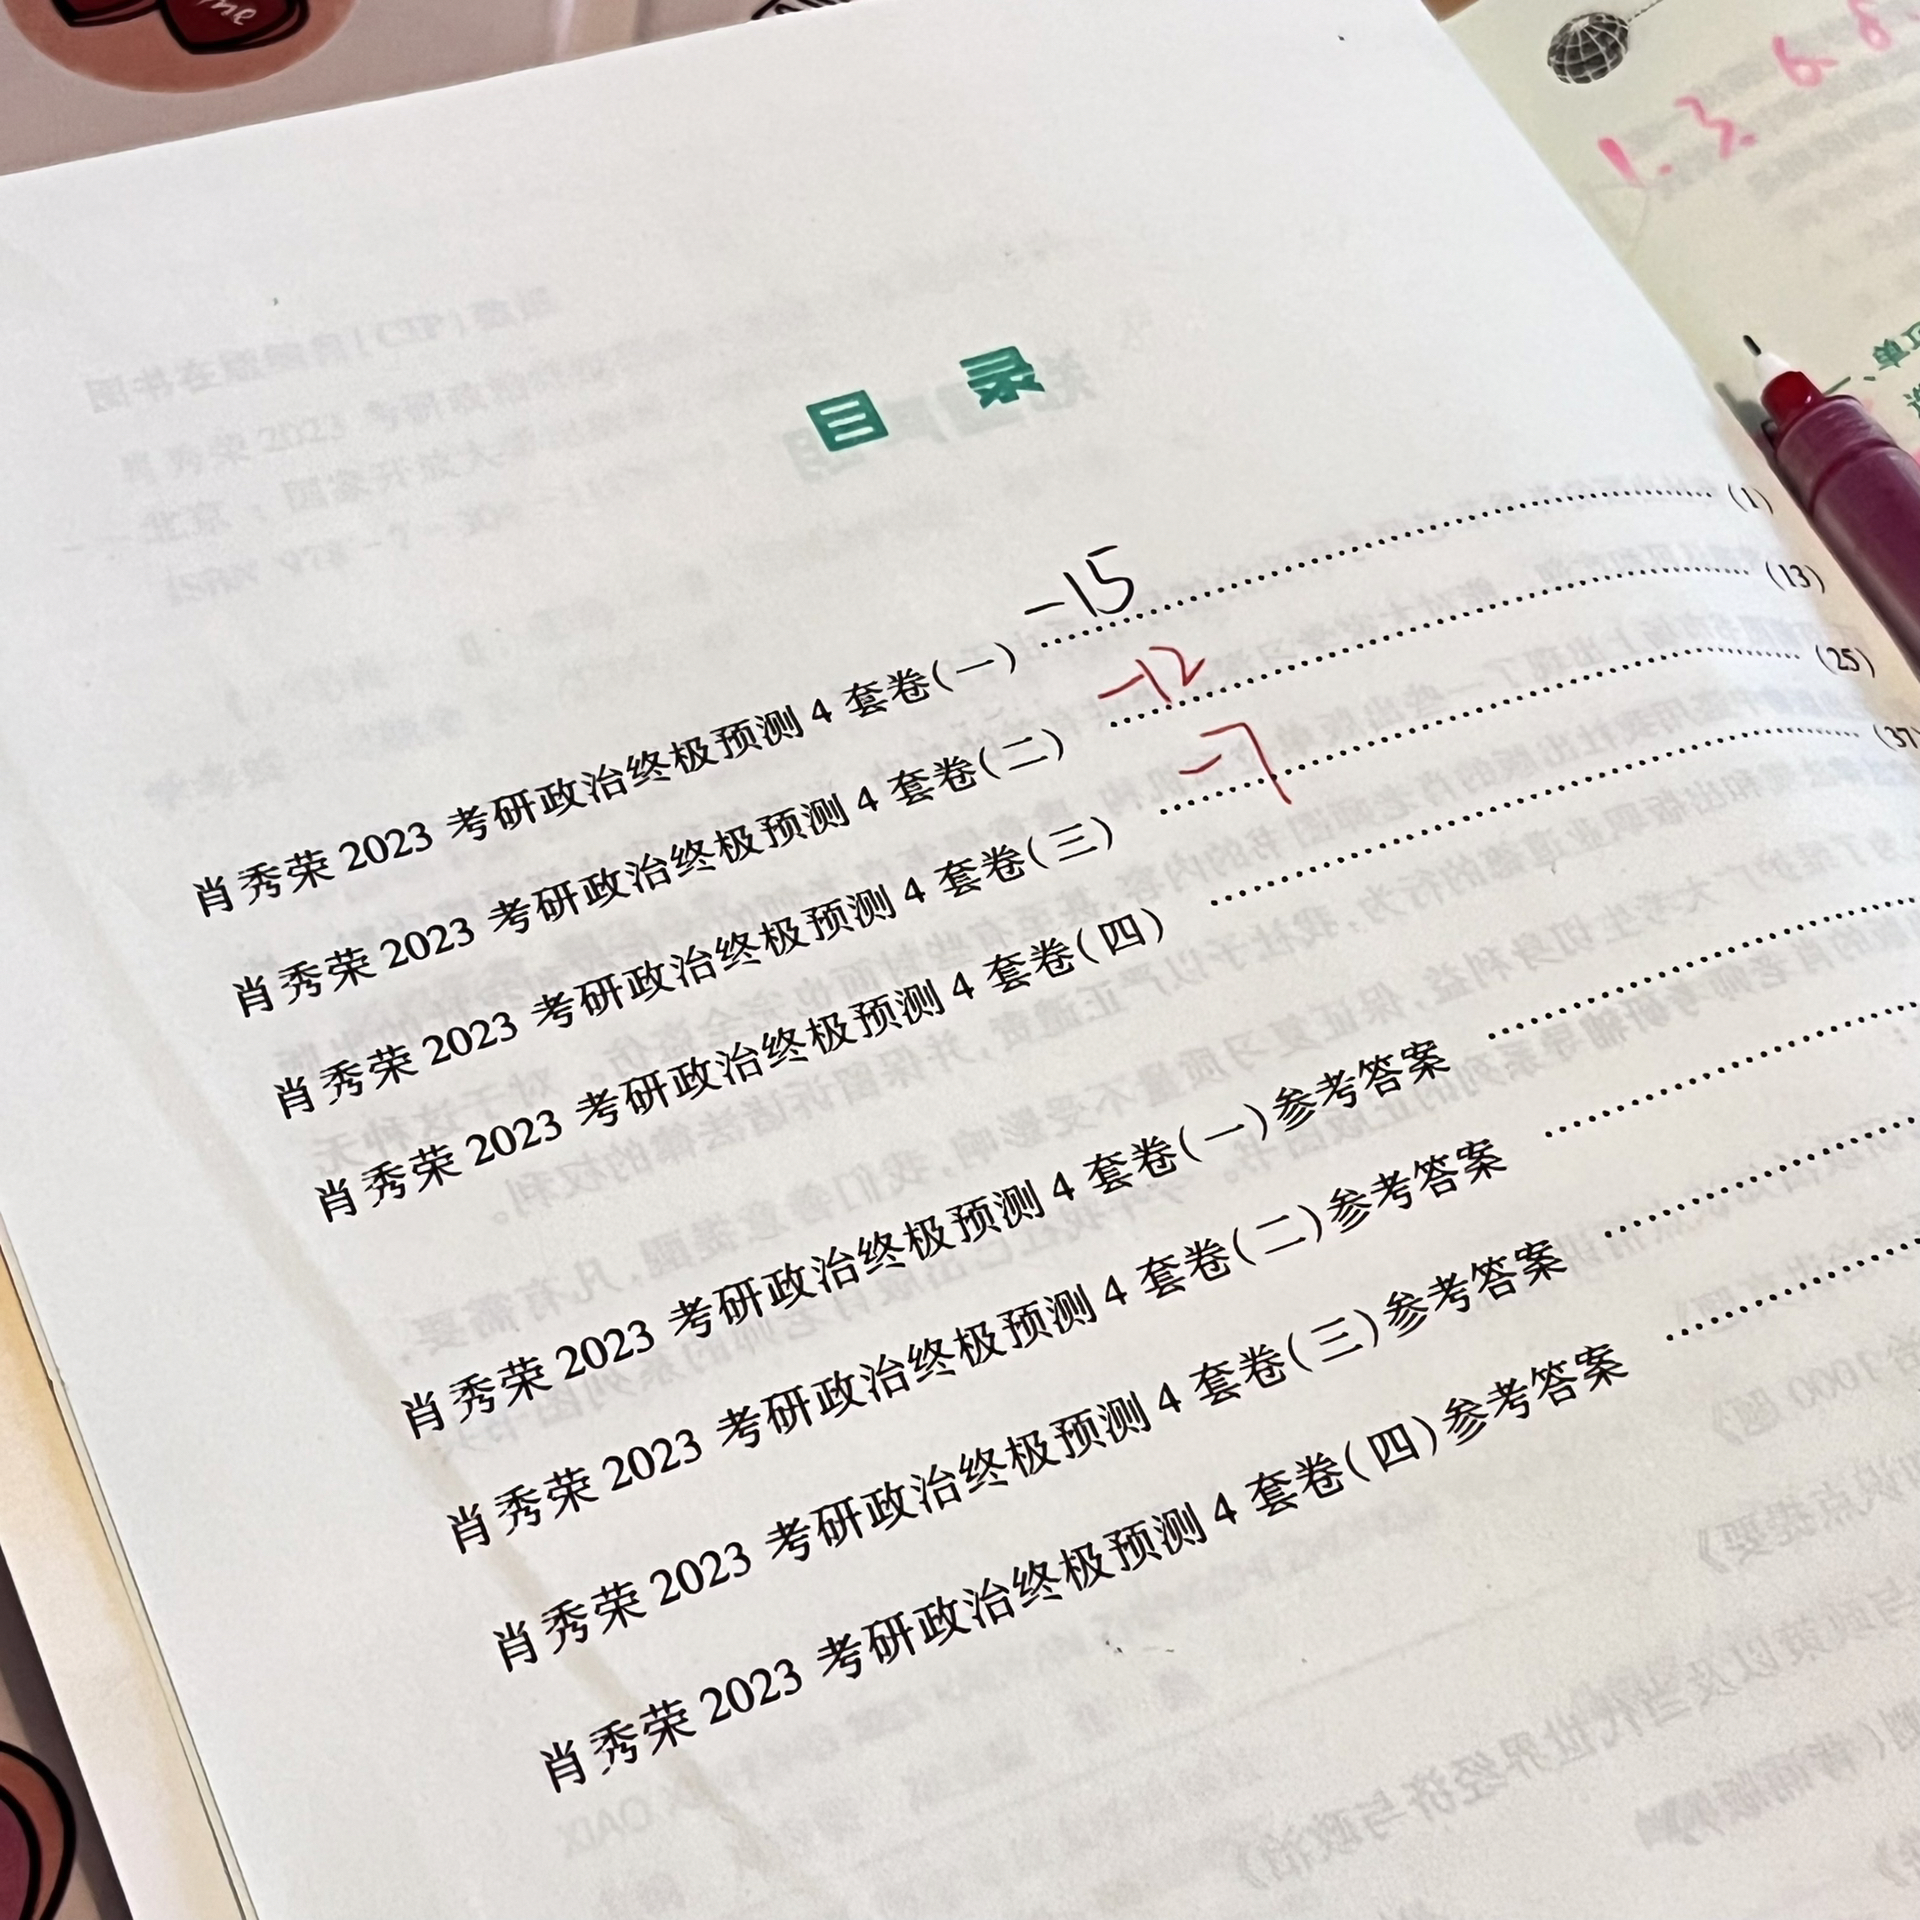 目 录
肖秀荣 2023 考研政治终极预测 4 套卷(一) -15 (1)
肖秀荣 2023 考研政治终极预测 4 套卷(二) -12 (13)
肖秀荣 2023 考研政治终极预测 4 套卷(三) -7 (25)
肖秀荣 2023 考研政治终极预测 4 套卷(四) (37)
肖秀荣 2023 考研政治终极预测 4 套卷(一)参考答案
肖秀荣 2023 考研政治终极预测 4 套卷(二)参考答案
肖秀荣 2023 考研政治终极预测 4 套卷(三)参考答案
肖秀荣 2023 考研政治终极预测 4 套卷(四)参考答案
1. 3. 6. 8.
一、单项